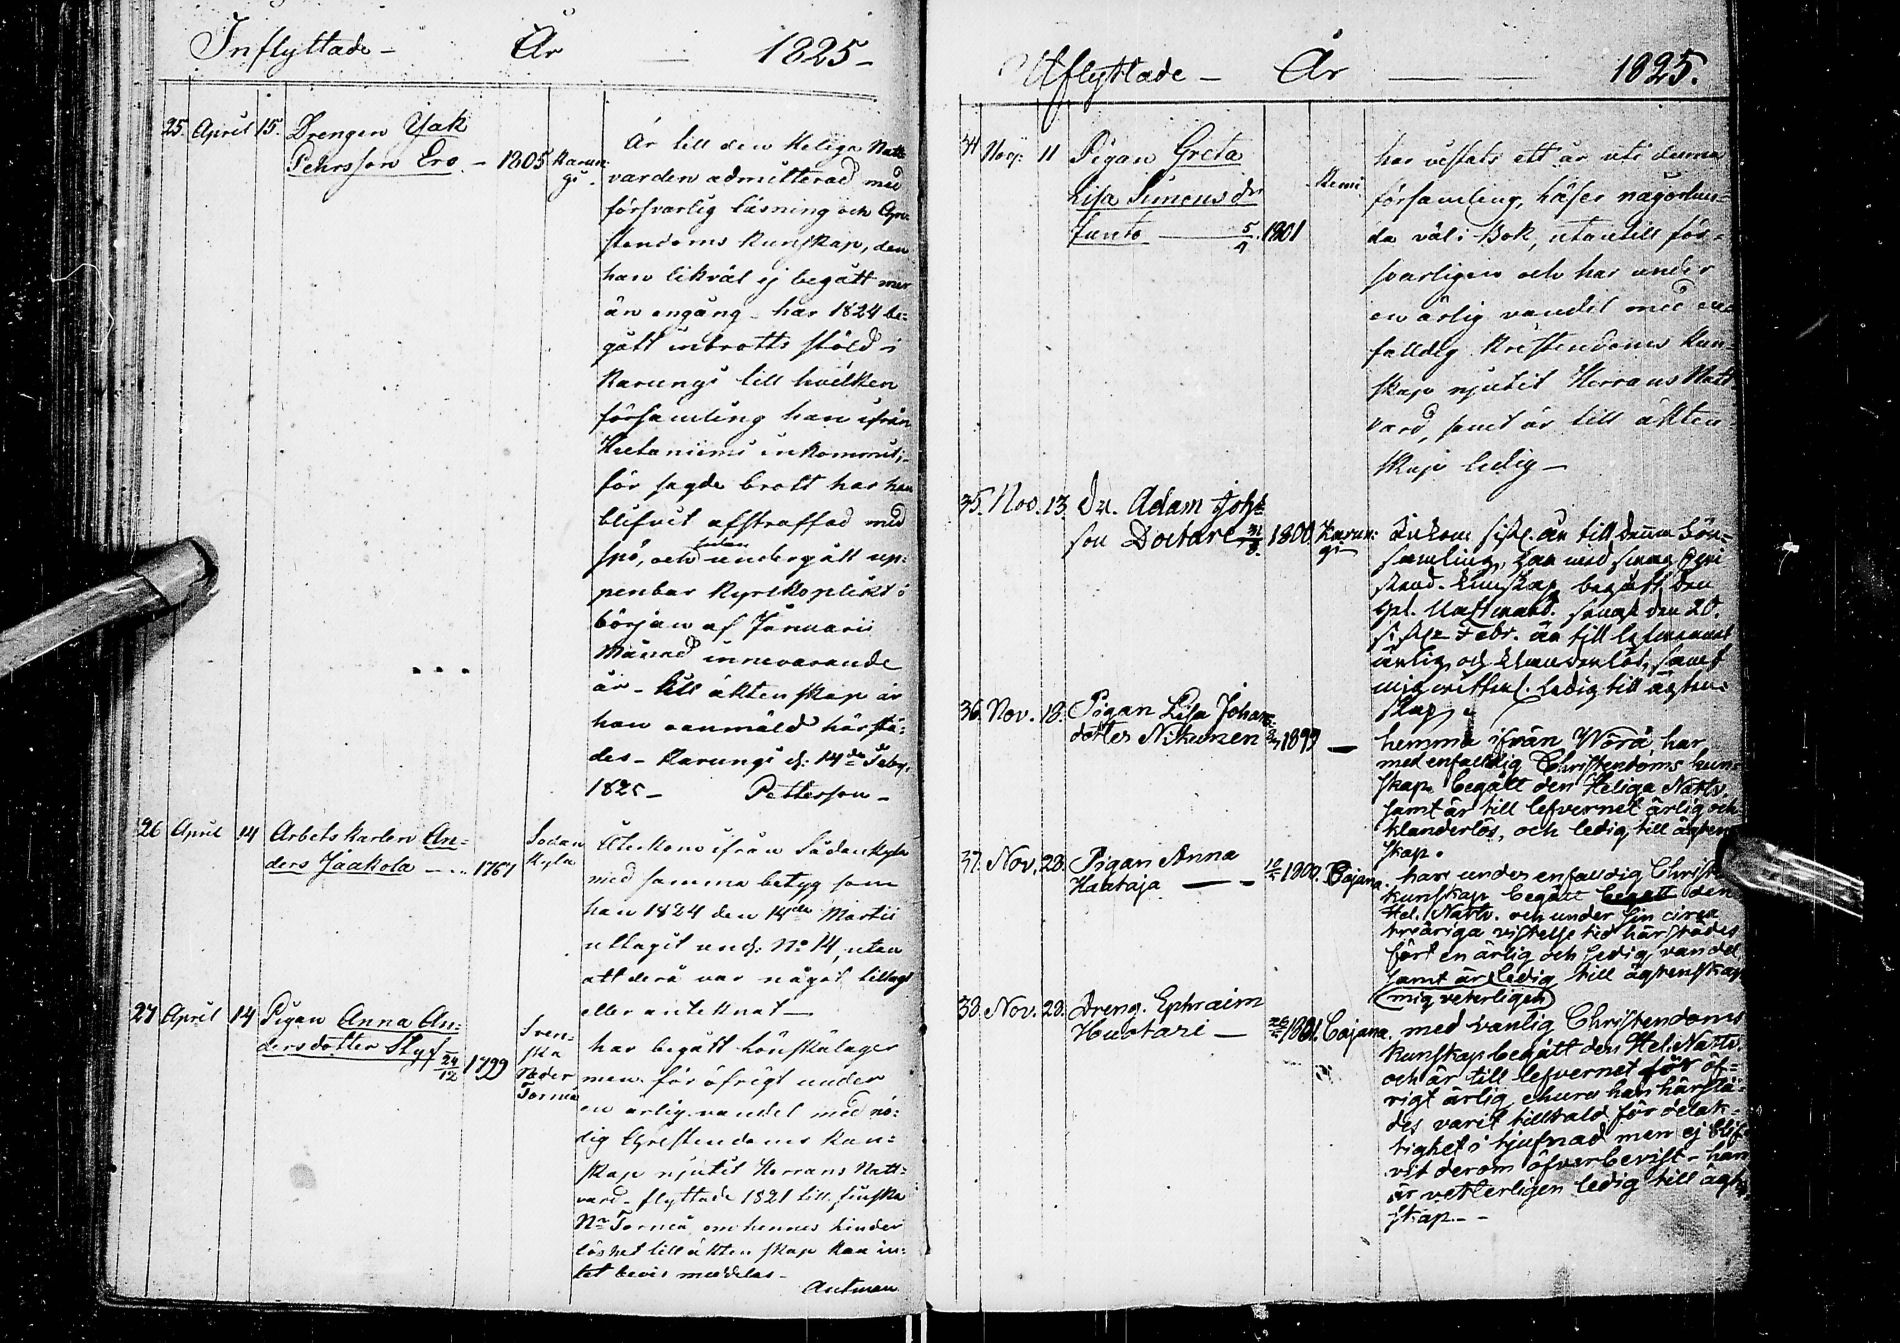 Inflyttade - År 1825 -
25. April 15. Drengen Yak
Pehrsson Ero - 1805 Karun-
gi.
Är till den Heliga Natt-
varden admitterad med
försvarlig läsning och Chri-
stendoms kunskap, den
han likväl ej begått mer
än engång - har 1824 be-
gått inbrotts stöld i
Karungi till hvilken
församling han ifrån
Hietaniemi inkommit;
för sagde brott har han
blifvit afstraffad med
spö, och sedan undergått up-
penbar kyrkoplikt i
början af Januarii
Månad innevarande
år - till äktenskap är
han oanmäld härstä-
des - Karungi d. 14de Feby.
1825 - Petterson -
26 April 14 Arbetskarlen An-
ders Jaakola - 1767
Sodan
kyla
Återkom ifrån Sodankyla
med samma betyg som
han 1824 den 14de Martii
uttagit und. No 14, utan
att derå var något tillagt
eller anteknat -
27 April 14 Pigan Anna An-
dersdotter Styf 24/12 1799
Sven-
ska
Neder
Torneå
har begått lönskalager
men för öfrigt under
en ärlig vandel med nö-
dig Christendoms kun-
skap njutit Herrans Natt-
vard - flyttade 1821 till finska
Nr Torneå, om hennes hinder
löshet till äktenskap kan in-
tet bevis meddelas -
Antman
Utflyttade - År - 1825.
34 Nov: 11 Pigan Greta
Lisa Simons dr
Junto - 5/4 1801
Kemi
har vistats ett år uti denna
församling, läser någorlun-
da väl i Bok, utantill för-
svarligen och har under
en ärlig vandel med en-
falldig Kristendoms kun-
skap njutit Herrans Natt
vard, samt är till äkten
skap ledig -
35. Nov. 13. Dr. Adam Joh
son 1800. Karun-
gi
samling, har med
skap.
36. Nov. 18. Pigan Lisa Johans
dotter Nikunen 1799 -
hemma ifrån Wörå, har
med enfaldig Christendoms kun-
skap begått den Heliga Nattv.
samt är till lefvernet ärlig och
klanderlös, och ledig till ägten
skap.
37. Nov. 23. Pigan Anna
Haataja - 1800. Cajana.
har under enfaldig Christ
kunskap begått begått den
Hel. Nattv. och under sin circa
treåriga vistelse tid härstädes
fört en ärlig och ledig vandel
samt är ledig till ägtenskap
(mig veterligen)
38. Nov. 23. Dreng. Ephraim
Huotari - 1801. Cajana.
med vanlig Christendoms
kunskap begått den Hel. Nattv.
och är till lefvernet för öf-
rigt ärlig ehuru han härstä-
des varit tilltald för delak-
tighet i tjufnad men ej blif
vit derom öfverbevist - han
är vetterligen ledig till ägten
skap - -